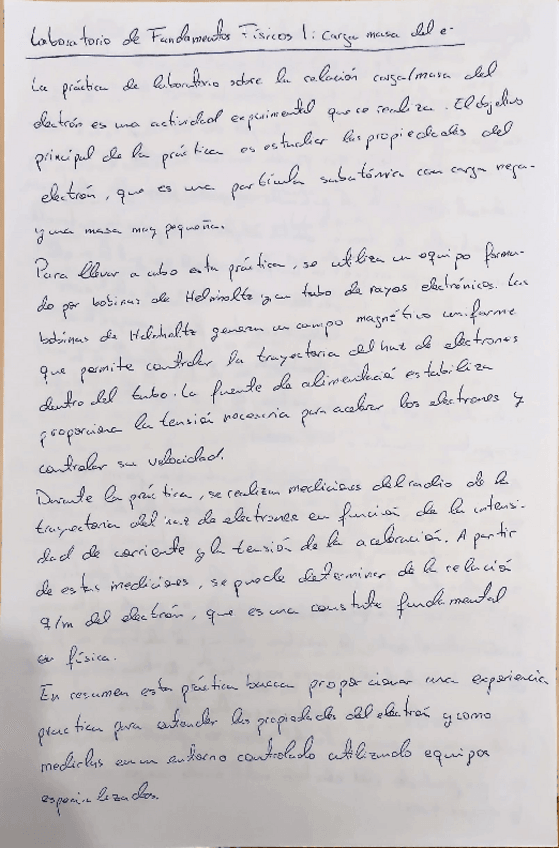 Laboratorio de Fundamentos Físicos I: carga masa del e-
La práctica de laboratorio sobre la relación carga/masa del
electrón es una actividad experimental que se realiza. El objetivo
principal de la práctica es estudiar las propiedades del
electrón, que es una partícula subatómica con carga nega-
y una masa muy pequeña.
Para llevar a cabo esta práctica, se utiliza un equipo forma-
do por bobinas de Helmholtz y un tubo de rayos electrónicos. Las
bobinas de Helmholtz generan un campo magnético uniforme
que permite controlar la trayectoria del haz de electrones
dentro del tubo. La fuente de alimentació estabiliza
proporciona la tensión necesaria para acelerar los electrones y
controlar su velocidad.
Durante la práctica, se realizan mediciones del radio de la
trayectoria del haz de electrones en función de la intensi-
dad de corriente y la tensión de la aceleración. A partir
de estas mediciones, se puede determinar de la relación
q/m del electrón, que es una constate fundamental
en física.
En resumen esta práctica busca proporcionar una experiencia
practica para entender las propiedades del electrón y como
medirlas en un entorno controlado utilizando equipos
especializados.